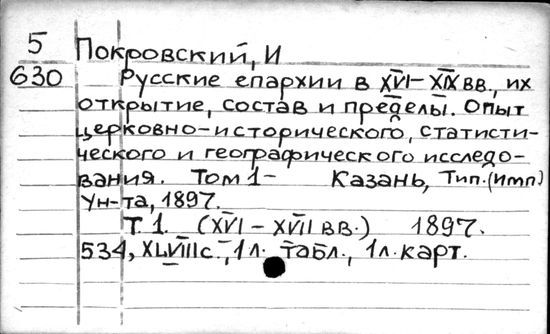 5 Покровский, И
630 Русские епархии в XVI – XIX вв., их
открытие, состав и пределы. Опыт
церковно-исторического, статисти-
ческого и географического исследо-
вания. Том 1- Казань, Тип. (Имп)
Ун-та, 1897.
Т. 1. (XVI – XVII вв.) 1897.
534, XLVIII с., 1 л. табл., 1 л. карт.